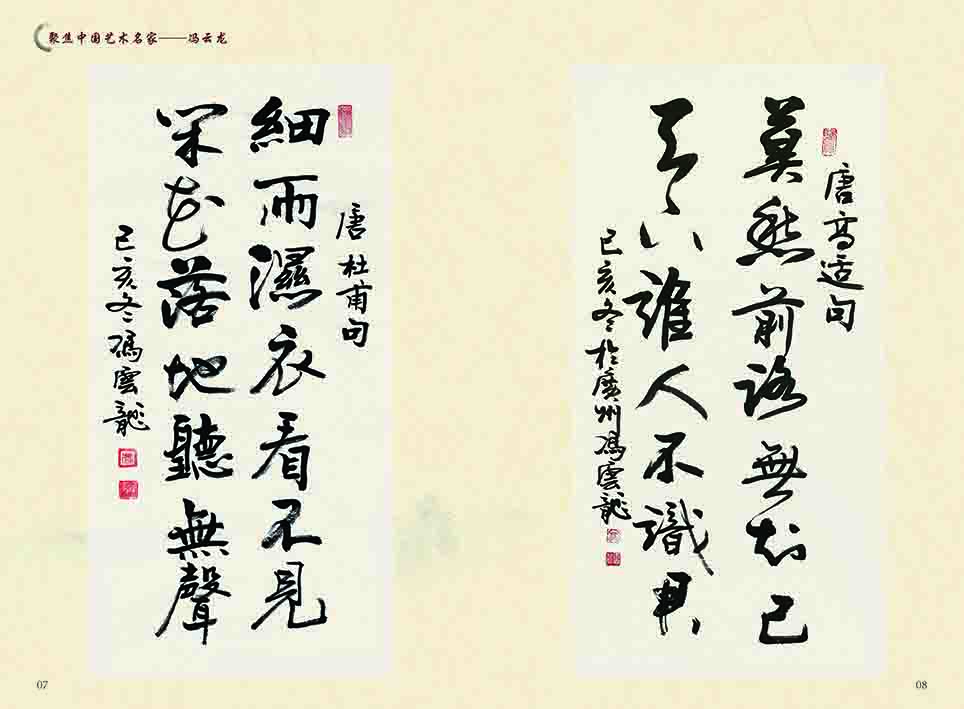 聚焦中国艺术名家——冯云龙
唐杜甫句
細雨濕衣看不見
閑花落地聽無聲
己亥冬馮雲龍
唐高适句
莫愁前路無知己
天下誰人不識君
己亥冬於廣州馮雲龍
07
08